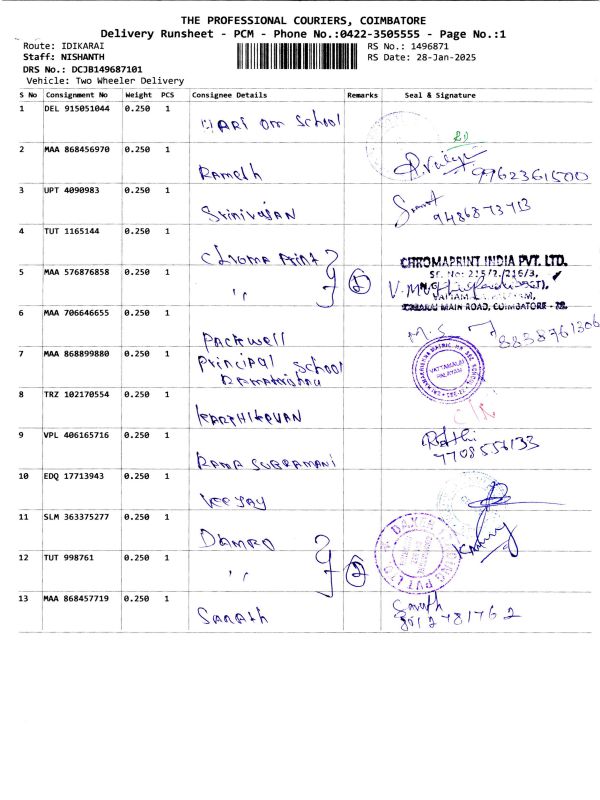 THE PROFESSIONAL COURIERS, COIMBATORE
Delivery Runsheet - PCM - Phone No.:0422-3505555 - Page No.:1
Route: IDIKARAI
RS No.: 1496871
Staff: NISHANTH
RS Date: 28-Jan-2025
DRS No.: DCJB149687101
Vehicle: Two Wheeler Delivery
S No Consignment No Weight PCS Consignee Details Remarks Seal & Signature
1 DEL 915051044 0.250 1 HARI OM School
2 MAA 868456970 0.250 1 Ramesh 9962361500
3 UPT 4090983 0.250 1 Srinivasan 9486873713
4 TUT 1165144 Chroma Print
5 MAA 576876858 0.250 1 " 2 CHROMAPRINT INDIA PVT. LTD.
SF. No: 215/2,/216/3,
MAIN ROAD, COIMBATORE
6 MAA 706646655 0.250 1 Packwell M.S 8838761306
7 MAA 868899880 0.250 1 Principal School
Ramakrishna VATTAMALAI PALAYAM
8 TRZ 102170554 0.250 1 KARTHIKEYAN
9 VPL 406165716 0.250 1 RAMA SUBRAMANI 7708556133
10 EDQ 17713943 0.250 1 VEEJAY
11 SLM 363375277 0.250 1 DAMRO
12 TUT 998761 0.250 1 " 2
13 MAA 868457719 0.250 1 Sarath Sarath
8012781762